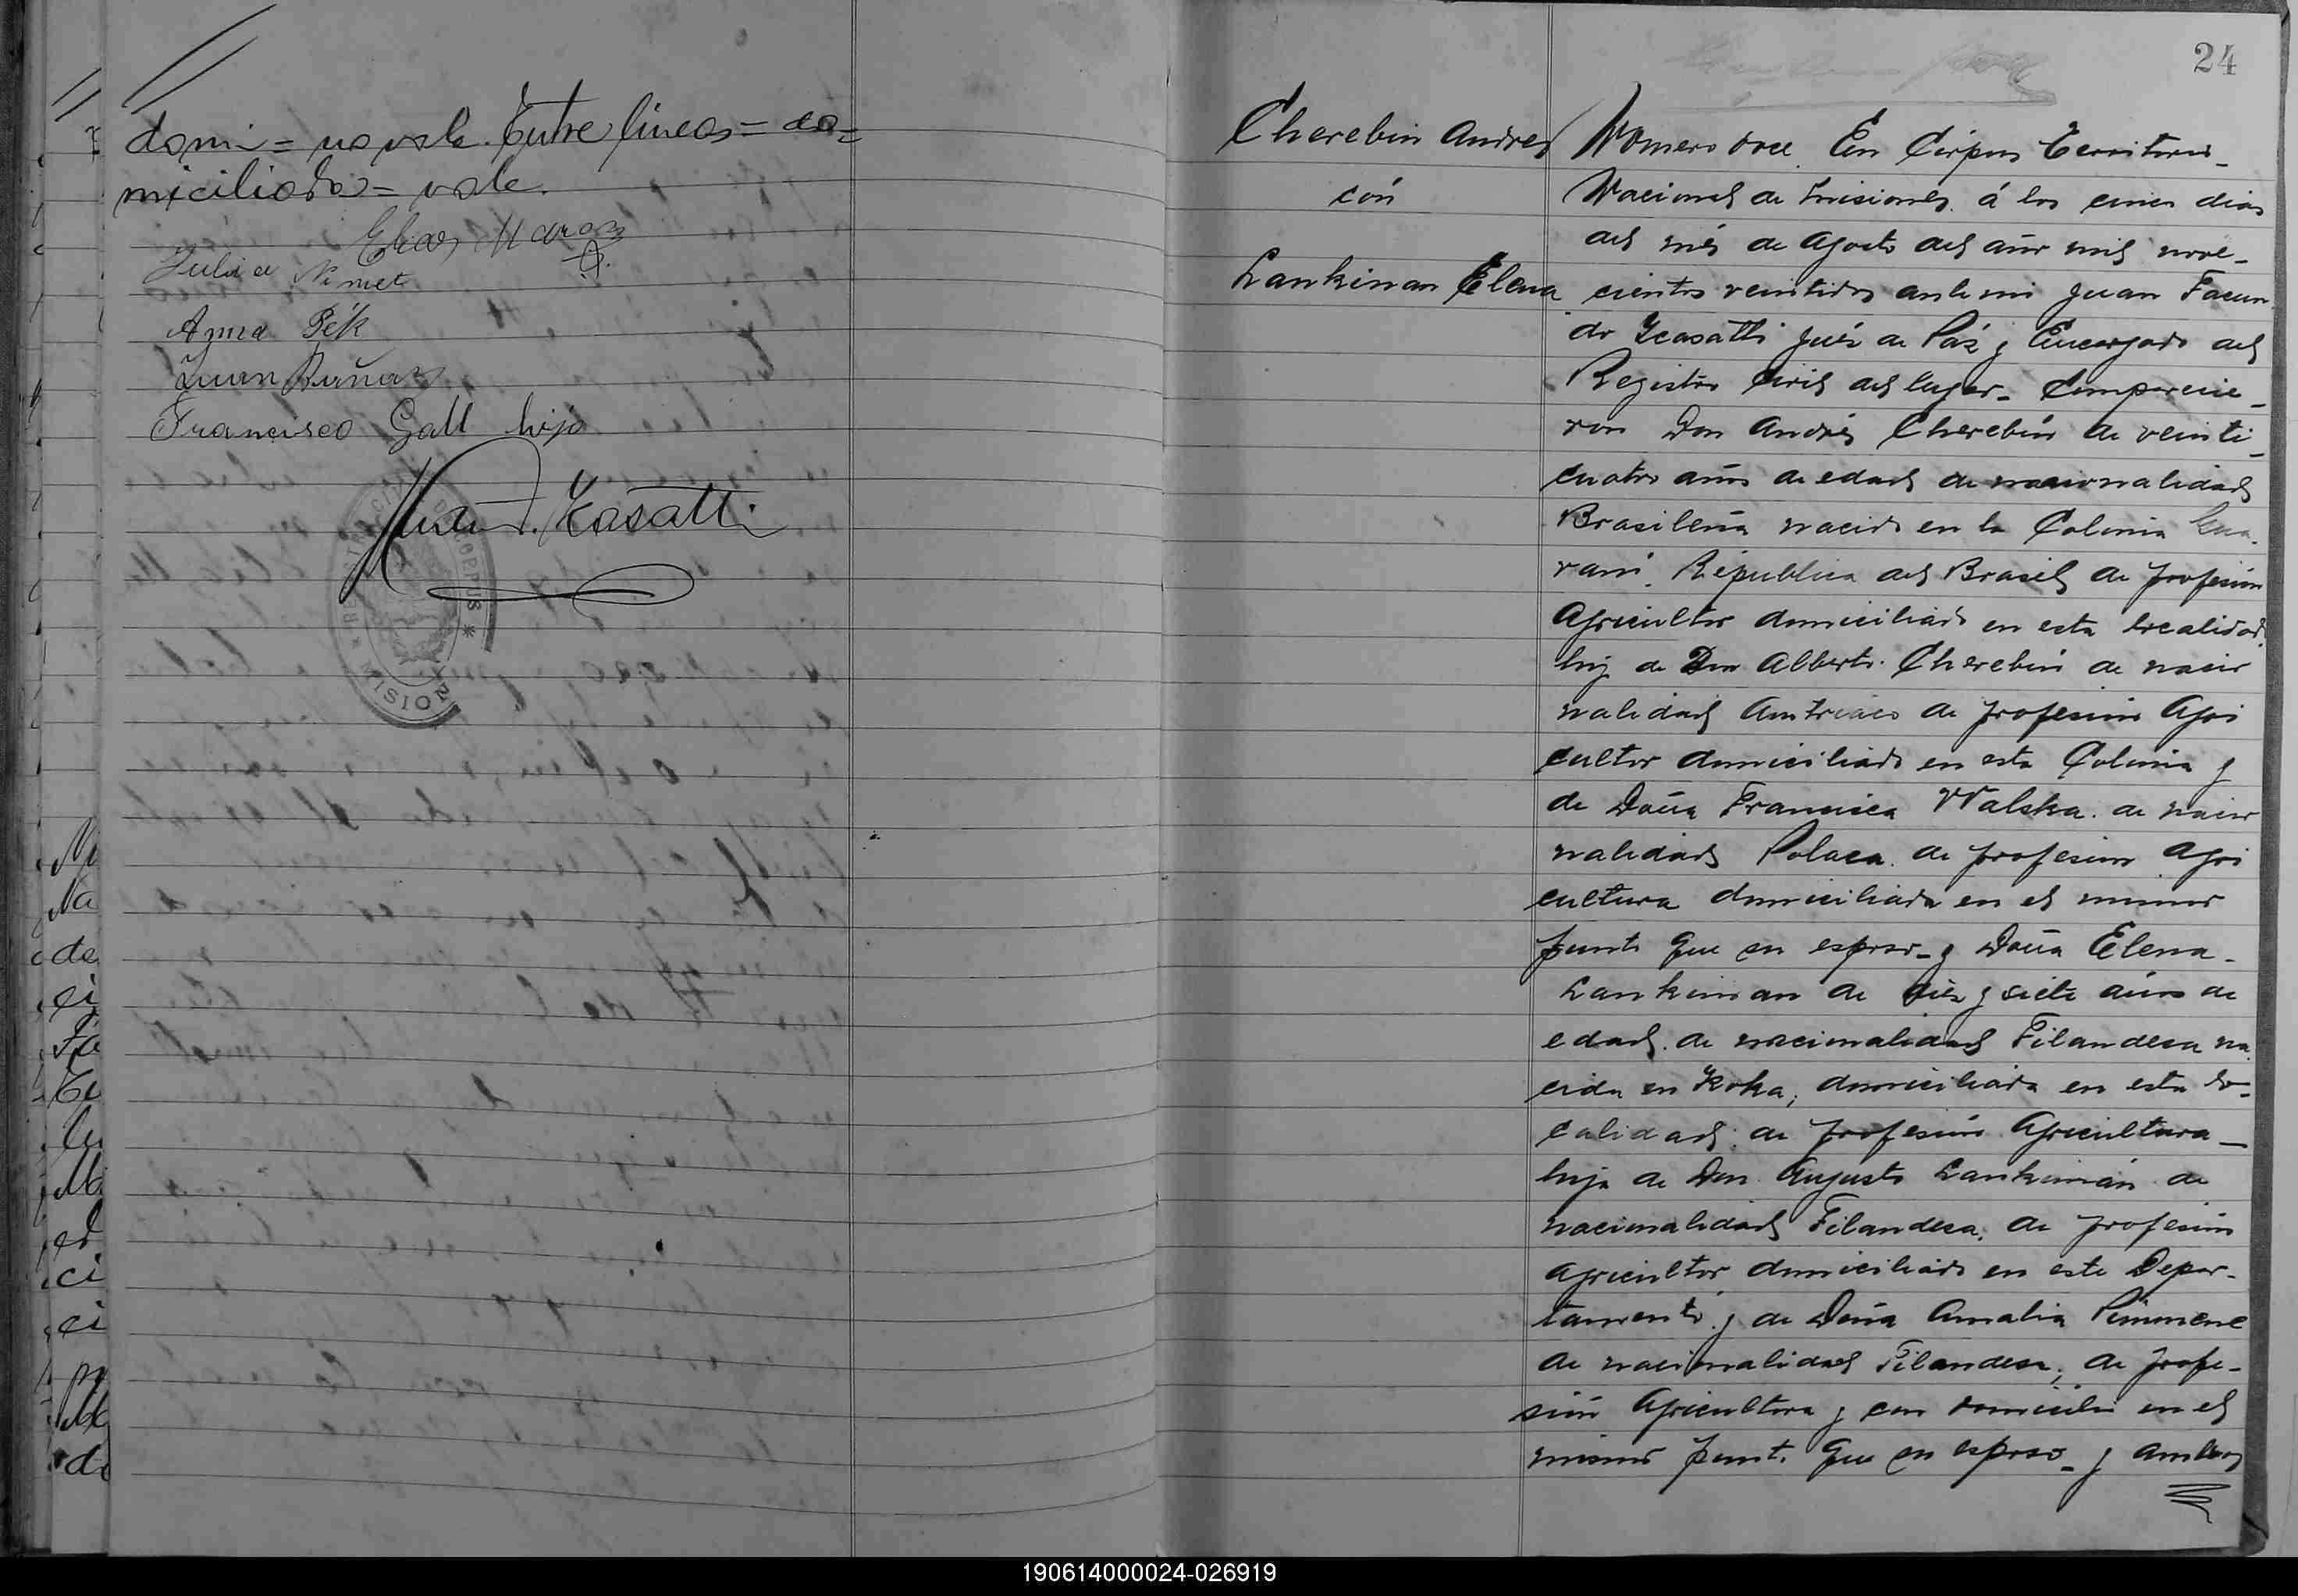 domi = no vale. Entre lineas = do=
miciliado = vale.
Elias Haros
Julia Nimet
Anna Pék
Juan Bañar
Francisco Gall hijo
Icasatti
24
Cherebin Andres
cón
Lankinan Elena
Número doce. En Córpus Territorio
Nacional de Misiones. á los cinco dias
del més de Agosto del año mil nove-
cientos veintidos ante mi Juan Facun
do Icasatti Juéz de Páz y Encargado del
Registro Civil del lugar. Comparecie-
ron Don Andrés Cherebin de veinti-
cuatro años de edad de nacionalidad
Brasileña nacido en la Colonia Gua-
rani República del Brasil de profesión
Agricultor domiciliado en esta localidad
hijo de Don Alberto Cherebin de nacio
nalidad Austriaco de profesión Agri
cultor domiciliado en esta Colonia y
de Doña Francisca Walska. de nacio
nalidad Polaca. de profesion Agri
cultura domiciliada en el mismo
punto que su esposo y Doña Elena
Lankinan de diéz y siete años de
edad. de nacionalidad Filandesa na
cida en Koka, domiciliada en esta lo-
calidad. de profesión Agricultura
hija de Don Augusto Lankinán de
nacionalidad Filandesa. de profesión
Agricultor domiciliado en este Depar-
tamento. y de Doña Amalia
de nacionalidad Filandesa, de profe-
sión Agricultora y con domicilio en el
mismo punto que su esposo y ambos
CORPUS
MISION
190614000024-026919